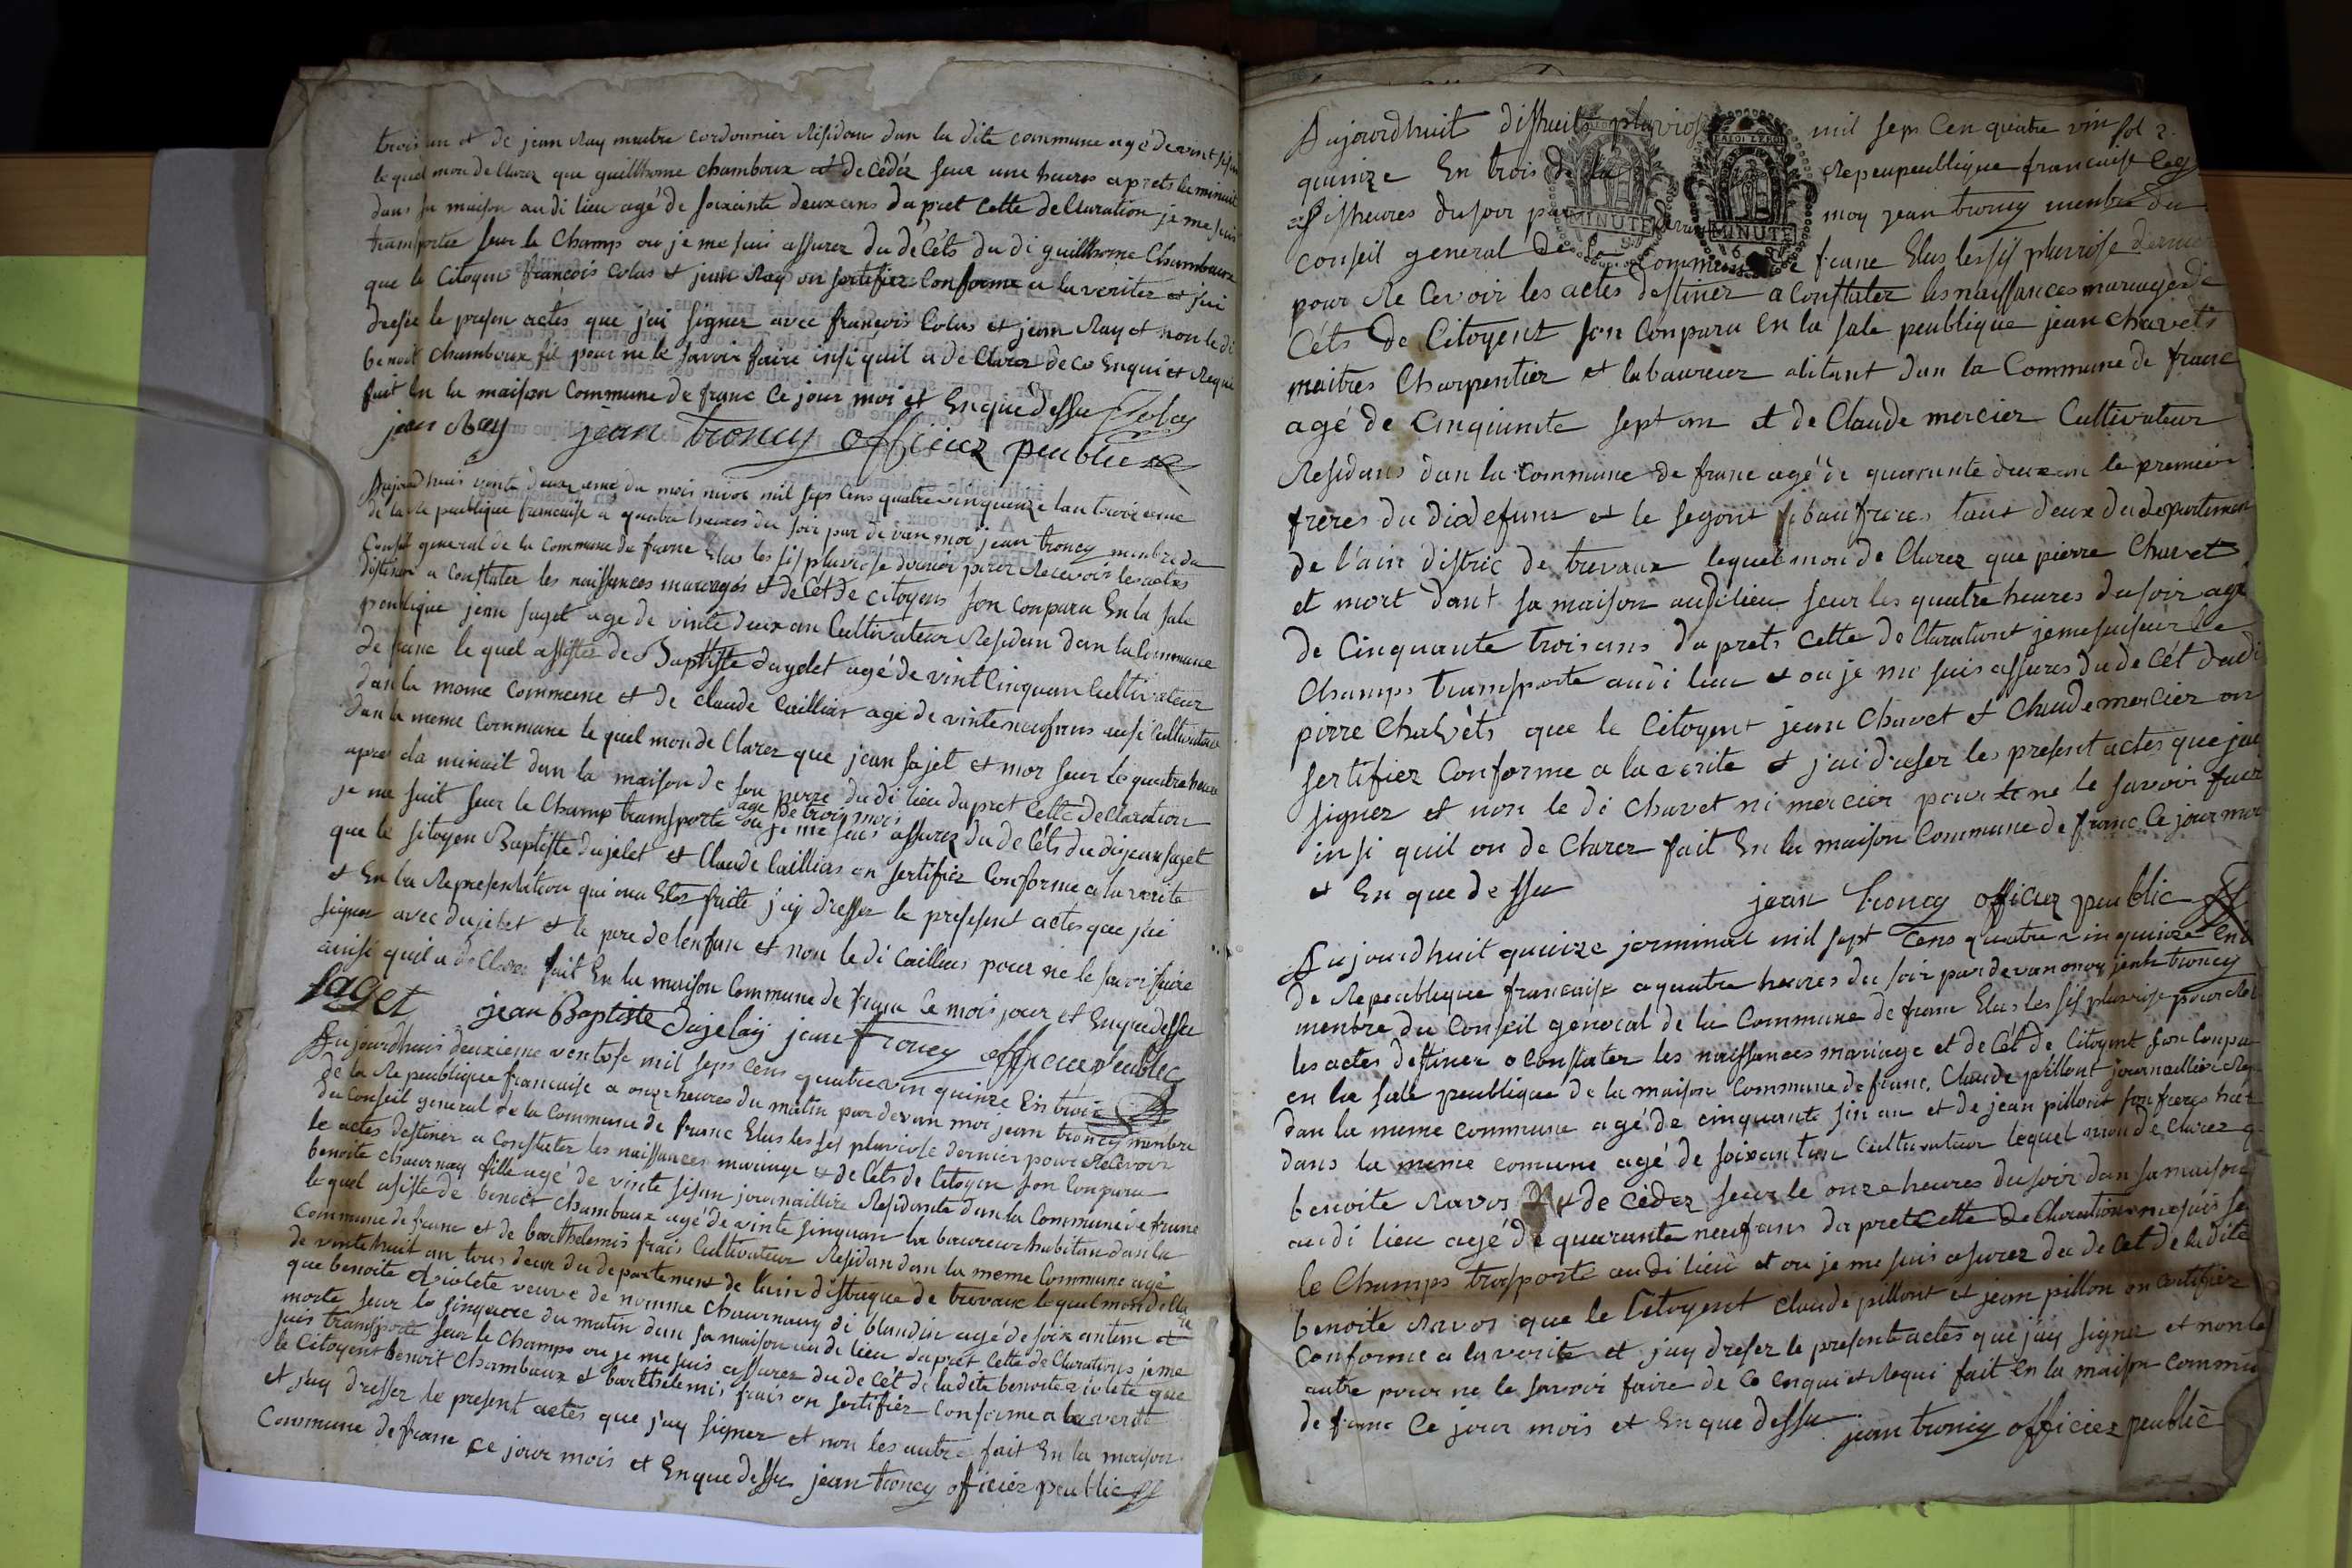 trois an et de jean Ray maitre cordonnier Résidan dan la dite commune agé de vint
lequel mon declarez que guillhome chamboux et de cédéz seur une heures aprets la minuit
dans sa maison audi lieu agé de soixainte deux ans da pret cette dellaration je me suis
transportee seur le champ ou je me suis assurez du décéts du di guillhome Chamboux
que le Citoyens francois Colas et jean Ray on sertifiez Conforme a la veritez et jai
dresée le presen actes que j'ai signer avec francois Colas et jean Ray et non le di
benoit chamboux fil pour ne le savoir faire insi quil a de Clarez de ce Enqui et Requi
fait En la maison Commune de franc Ce jour moi et Enque dessu fColas
jean Ray jean troncy officiez peublic
Aujourdhuis vinte deuxieme du mois nivoc mil seps Cens quatre vinquinze lan troisieme
de la Re peublique francaise a quatre heures du soir par de van moi jean troncy menbre du
Conseil general de la Commune de franc Elus les sis pluviose dernier pour Recevoir les actes
destiner a Constater les naissances mariages et de Cét de Citoyens son Conparu En la sale
peublique jean saget agé de vinte deux an Cultivateur Residan dan la Commune
de franc le quel assistée de Baptiste dugelet agé de vint Cinquan Cultivateur
dan la mome Commeune et de claude Caillias agé de vinte neuf ans ausi Cultivateur
dan la meme Commune le quel mon de Clarez que jean sajet et mor seur le quatre heure
apres da minuit dan la maison de son perre du di lieu da pret Cette declaration
age de trois mois
je me suit seur le Champ transporte ou je me seuis assurez du de Céts du di jean saget
que le sitoyen Baptiste dujelet et Claude Caillias on sertifiez Conforme a la verite
et En la Representation qui ma Etez faite j'ay dresser le present actes que j'ai
signer avec dujelet et le pere de lenfan et non le di Caillias pour ne le savoi faire
ainsi quil a de Clarez fait En la maison Commune de franc Ce mois jour et Enque dessu
saget jean Baptiste Dujelay jean troncy officier peublic
Aujourdhuis deuxieme ventose mil seps Cens quatre vin quinze En trois
de la Re peublique francaise a onze heures du matin par devan moi jean troncy menbre
du Conseil general de la Commune de franc Elus les sis pluviose dernier pour Recevoir
le actes destiner a Constater les naissances mariage et de Céts de Citoyen son Conparu
benoite chaurnay fille agé de vinte sisan journailliere Residante dan la Commune de franc
lequel asiste de benoit Chambaux agé de vinte sinquan la baureur habitan dan la
Commune de franc et de barthelemis frais Cultivateur Residan dan la meme Commune agé
de vinte huit an tous deux du departement de l'ain distrique de trevoux lequel mon de Cla
que benoite veuve de nomme Chaurnay di blandin agé de soixantun et
morte seur le sinqueure du matin dan sa maison au di lieu da pret Cette de Clarations je me
suis transporte seur le Champs ou je me suis assurez du de Cét de la dite benoite que
le Citoyent Benoit Chambaux et barthelemis frais on sertifiez Conforme a la verité
et jay dresser le present actes que j'ay signer et non les autre fait En la maison
Commune de franc Ce jour mois et Enque dessu jean troncy officiez peublic
Aujourdhuit disthuits pluviose mil seps Cen quatre vin fol 2.
quinize En trois de la Repeupeublique francaise
a sisheures du soir par devan moy jean troncy menbre du
conseil general de la Commune de franc Elus les sis pluviose dernier
pour Re Cevoir les actes destiner a Constater les naissances mariages de
Céts de Citoyent son Conparu En la sale peublique jean chavets
maitres Charpentier et labaureur abitant dan la Commune de franc
agé de Cinquiante sept an et de Claude mercier Cultivateur
Residans dan la Commune de franc agé de quarante deux an le premier
freres du di defunt et le segont si baufreres taut deux du departement
de l'ain distric de trevoux lequel mon de Clarez que pierre Chavet
et mort dant sa maison audilieu seur les quatre heures du soir agé
de Cinquante trois ans da prets cette de Clarationt je me suis seur le
Champs transporte audi lieu et ou je me suis assures du de Cét du di
pirre Chalvèts que le Citoyent jean Chavet et Claude mercier on
sertifiez Conforme a la verite et j'ai dreser les present actes que jai
signer et non le di Chavet ni mercier pour ne le savoir fair
in si quil on de Clarez fait En la maison Commune de franc Ce jour moi
et En que dessu jean troncy officiez peublic
Aujourdhuit quinze jerminal mil sept Cens quatre vin quinze En
de Repeublique francaise a quatre heures du soir par de van moy jean troncy
menbre du Conseil general de la Commune de franc Elus les sis pluviose pour Re
les actes destiner a Constater les naissances mariage et de Cét de Citoyent son Conpa
en la sale peublique de la maison Commune de franc, Claude pillont journailliere Re
dan la meme commune agé de cinquante sin an et de jean pillont son freres
dans la meme comune agé de soixantun Cultivateur lequel mon de Clarez q
benoite Ravos et de Cédez seur le onze heures du soir dan sa maison
audi lieu agé de quarante neuf ans da pret Cette de Clarations me suis se
le Champs trasporte audi lieu et ou je me suis asurez du de Cet de la dite
benoite Ravos que le Citoyent Claude pillont et jean pillon on certifiez
Conforme a la verite et jay dreser le present actes que jay signer et non le
autre pour ne le savoir faire de Ce enqui et Requi fait En la maison Commu
de franc Ce jour mois et En que dessu jean troncy officiez peublic